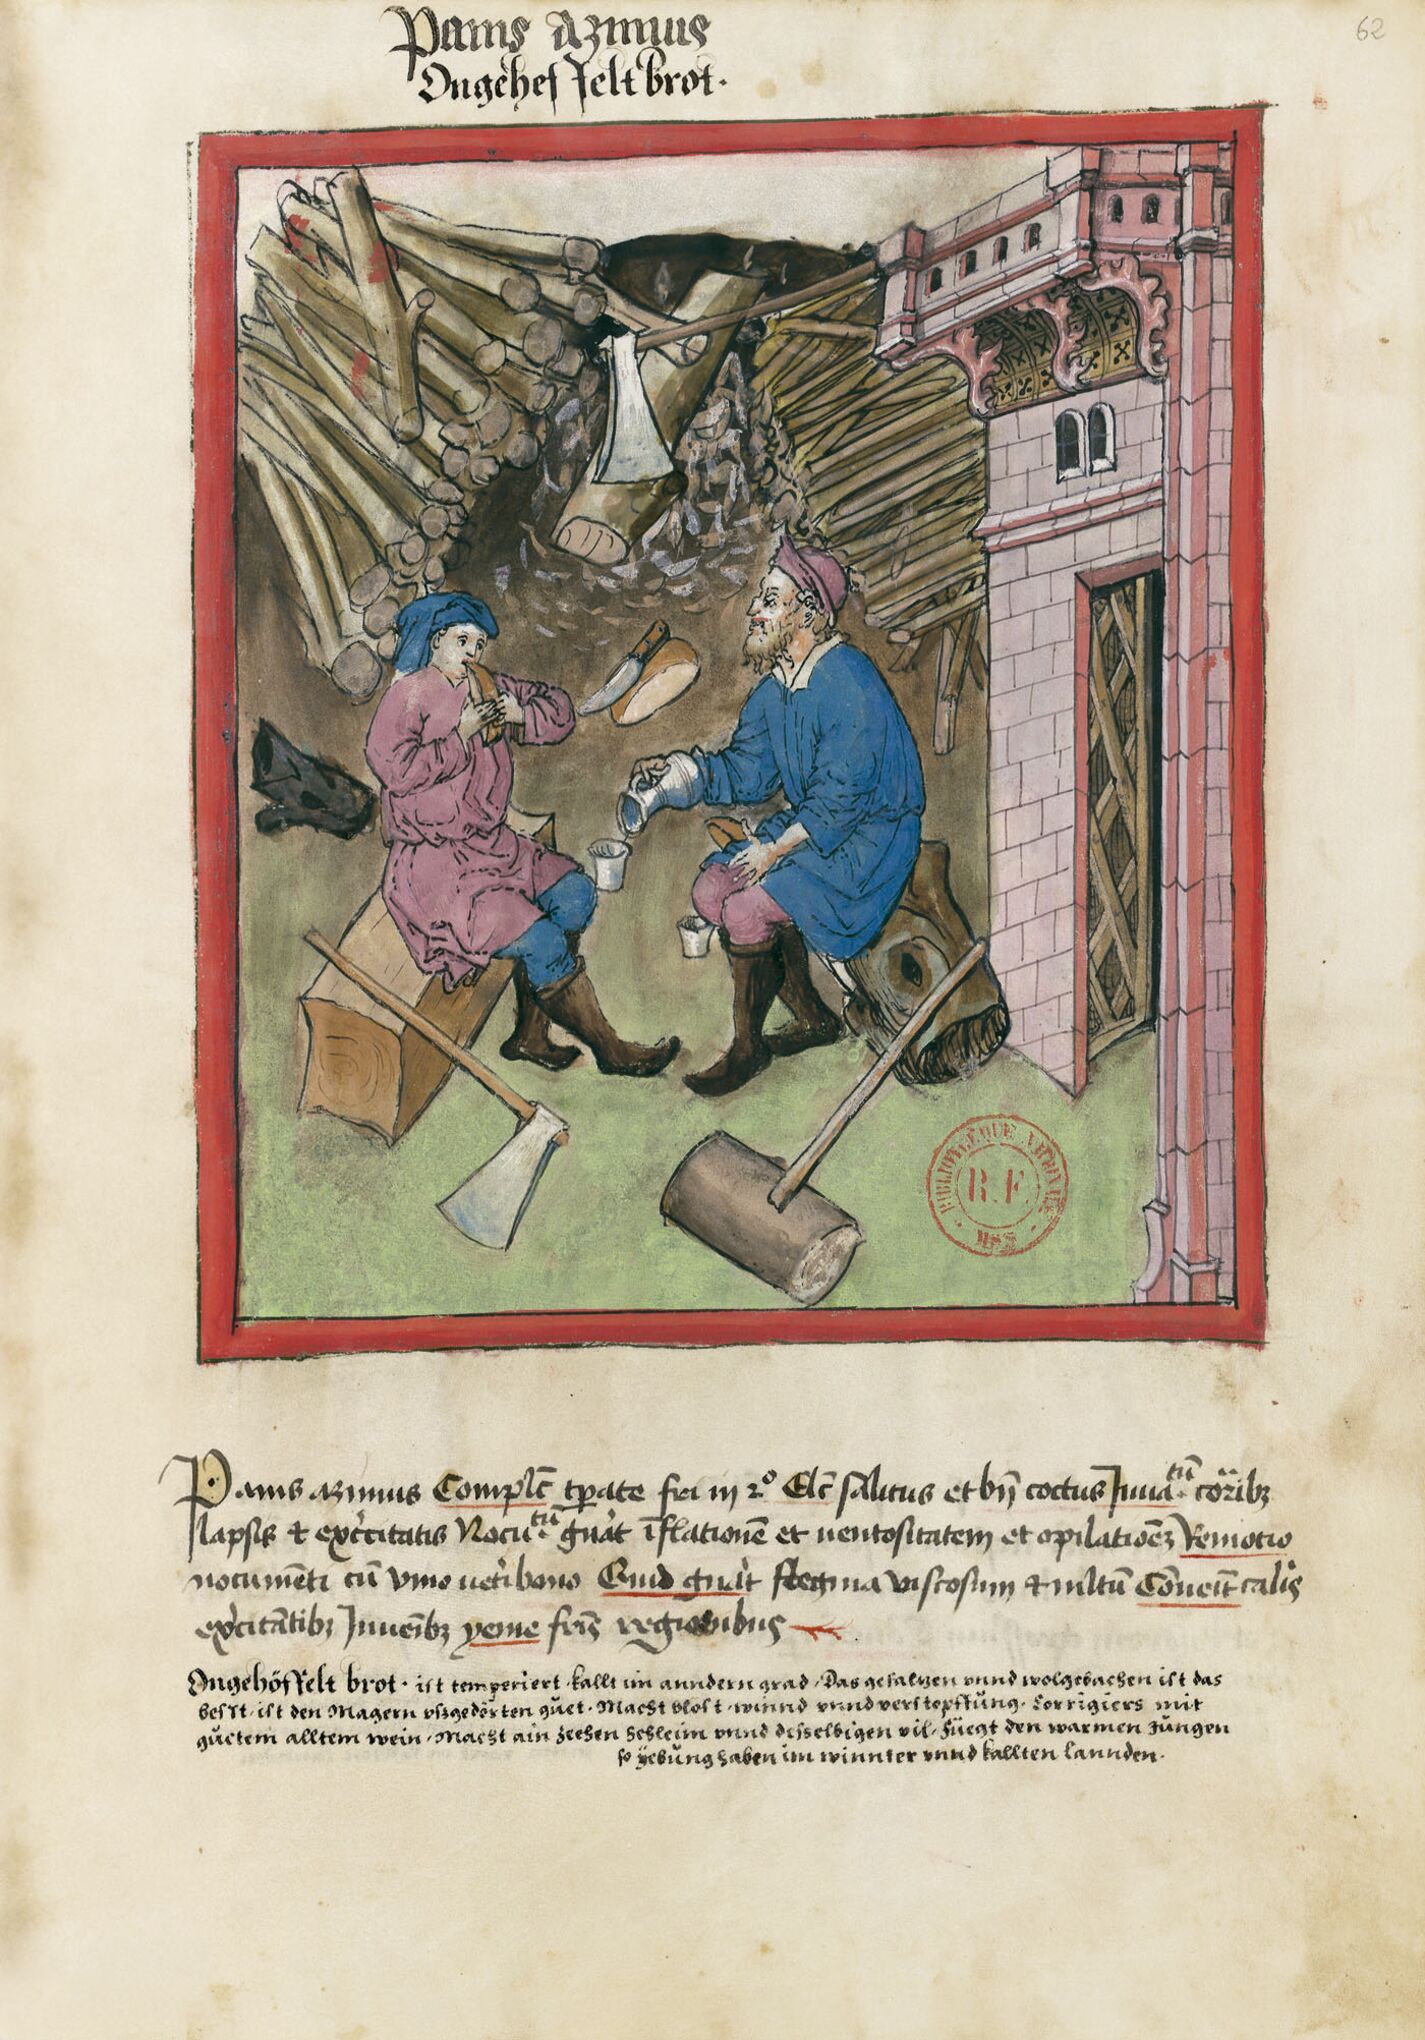 Panis Azimus
Ungehef felt brot.
62
BIBLIOTHEQUE NATIONALE
R.F.
MSS
Panis azimus Complc̄ tp̄ate fri in 2º Elc̄ salitus et bn̄ coctus Juua.tū corꝑibꝫ
lapsis et exc̓citatis Nocu.tū gn̓at īflationē et uentositatem et opilationēꝫ Remotio
nocumēti cū vino uet̓i bono Quid gn̓at flegma viscosum et multū Cōueīt calis̓
exc̓itātibꝫ Juuēibꝫ yeme fris̄ regionibus
Ungehöffelt brot · ist temperiert kallt im anndern grad · Das gesalzen vnnd wolgebachen ist das
besst · ist den Magern vszgedörten guet · Macht blost · winnd vnnd verstopffung · Corrigiers mit
guetem alltem wein · Macht ain zechen Schleim vnnd desselbigen vil · Füegt den warmen Jungen
so yebung haben im winnter vnnd kallten lannden ·